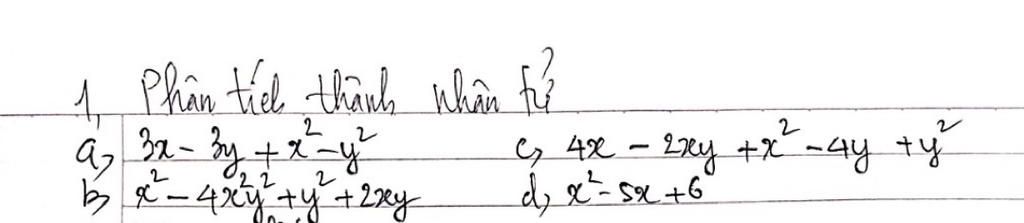 1, Phân tích thành nhân tử
a, 3x - 3y + x² - y² c, 4x - 2xy + x² - 4y + y²
b, x² - 4x²y² + y² + 2xy d, x² - 5x + 6